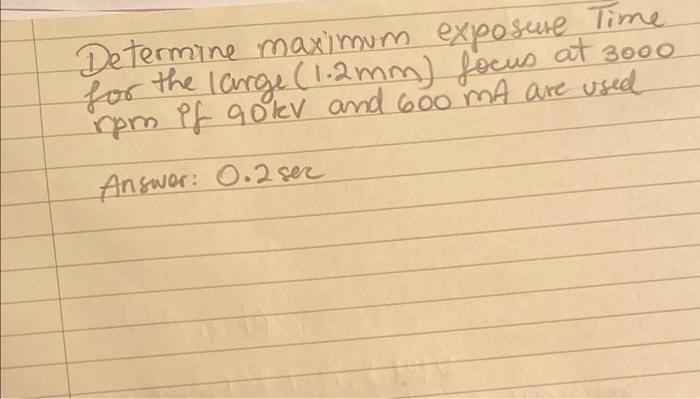 Determine maximum exposure Time
for the large (1.2mm) focus at 3000
rpm if 90kV and 600 mA are used
Answer: 0.2 sec